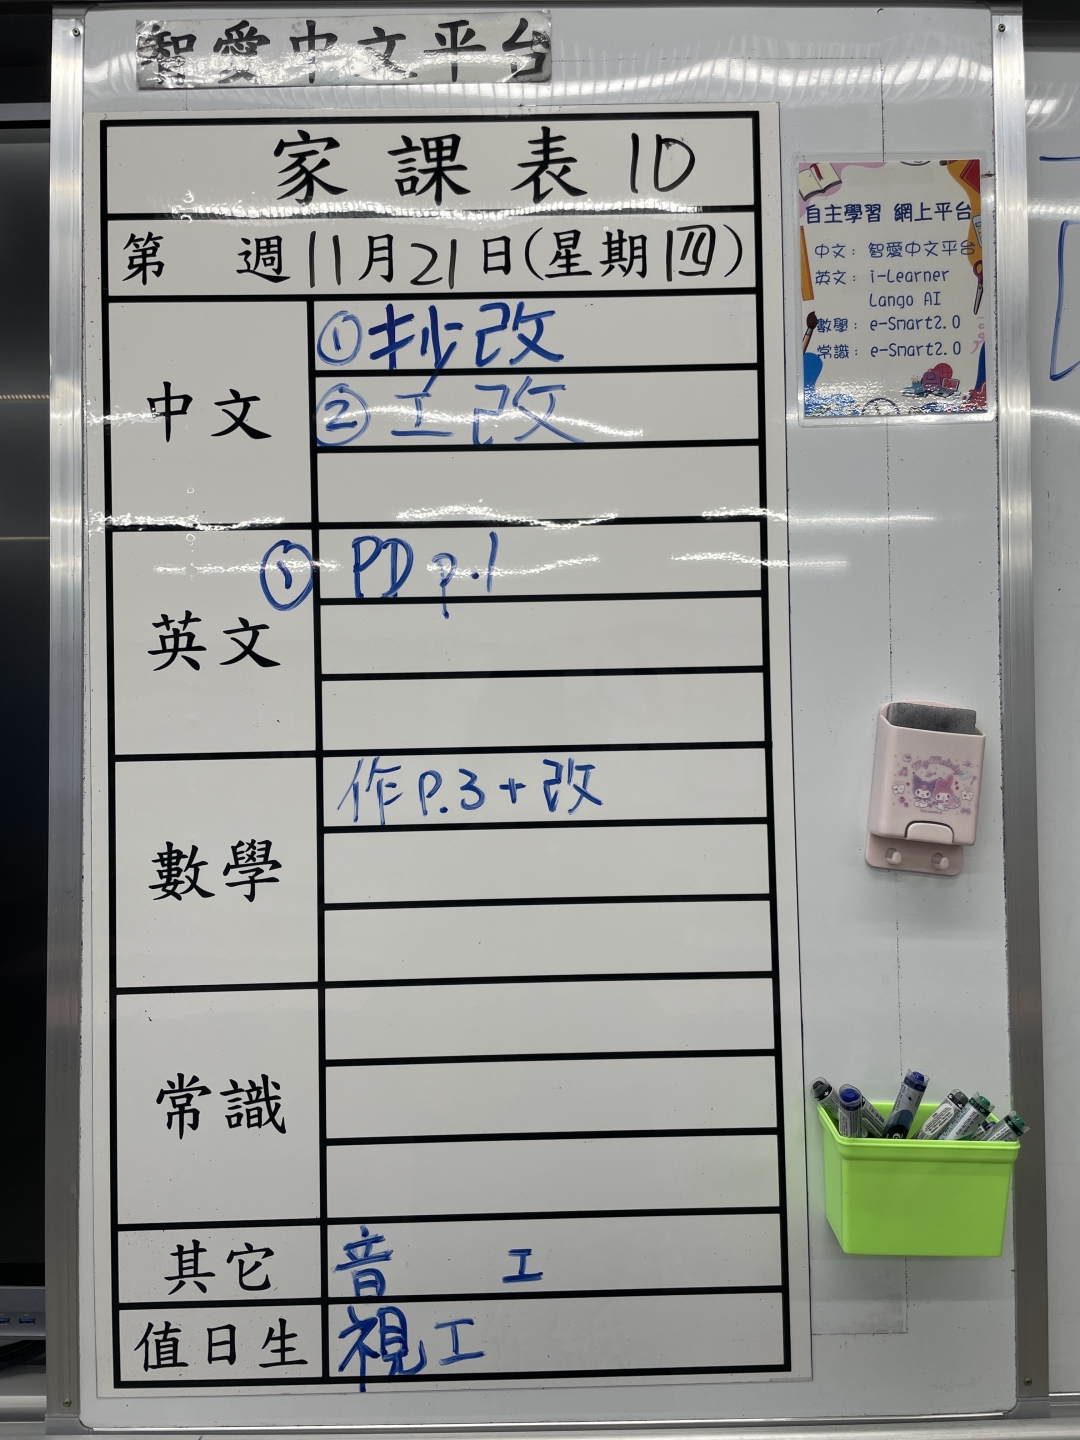 智愛中文平台
家課表 10
第 週 11月21日(星期四)
中文
①抄改
②工改
英文
① PD p.1
數學
作 P.3 + 改
常識
其它
音 工
值日生
視工
自主學習 網上平台
中文： 智愛中文平台
英文： i-Learner
Lango AI
數學： e-Smart2.0
常識： e-Smart2.0
My Melody